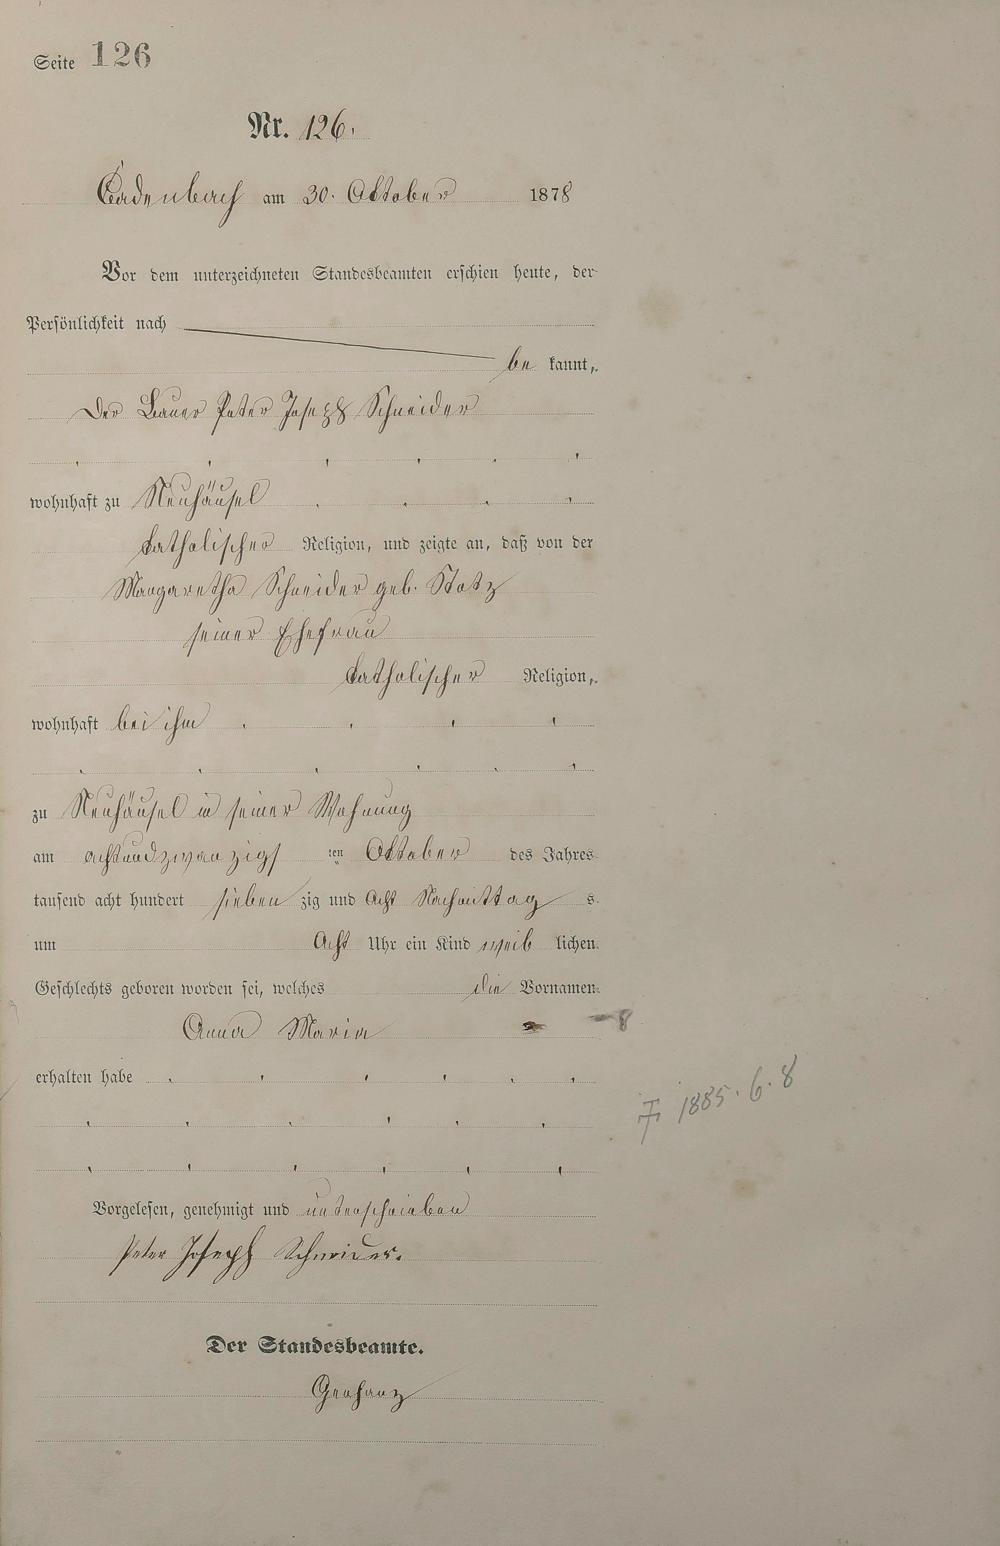 Seite 126
Nr. 126.
Cadenbach am 30. Oktober 1878
Vor dem unterzeichneten Standesbeamten erschien heute, der
Persönlichkeit nach
be kannt,
Der Bauer Peter Joseph Schneider
wohnhaft zu Neuhäusel
katholischer Religion, und zeigte an, daß von der
Margaretha Schneider geb. Statz
seiner Ehefrau
katholischer Religion,
wohnhaft bei ihm
zu Neuhäusel in seiner Wohnung
am achtundzwanzigs ten Oktober des Jahres
tausend acht hundert sieben zig und Acht Nachmittag s
um Acht Uhr ein Kind weib lichen
Geschlechts geboren worden sei, welches die Vornamen
Anna Maria
erhalten habe
1885. 6. 8
Vorgelesen, genehmigt und unterschrieben
Peter Joseph Schneider.
Der Standesbeamte.